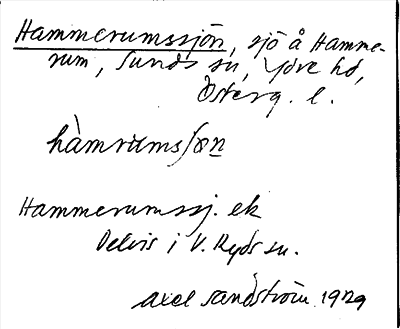 Hammerumssjön, sjö å Hamme-
rum, Sunds sn, Ydre hd,
Österg. l.
hàmrumsʃøn
Hammerumssj. ek
Delvis i V. Ryds sn.
Axel Sandström 1929